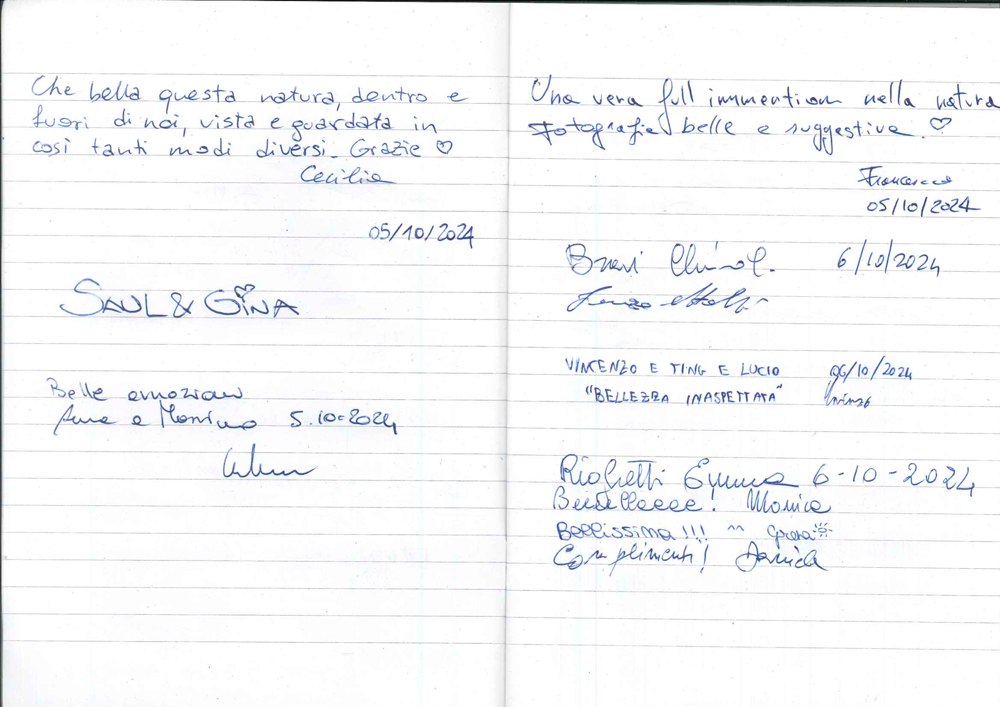 Che bella questa natura, dentro e
fuori di noi, vista e guardata in
così tanti modi diversi. Grazie ♡
Cecilia
05/10/2024
SAUL & GINA
Belle emozioni
Anna e Massimo 5.10-2024
Una vera full immention nella natura
Fotografie belle e suggestive. ♡
Francesca
05/10/2024
6/10/2024
VINCENZO E TING E LUCIO 06/10/2024
"BELLEZZA INASPETTATA"
Righetti Emma 6-10-2024
Monica
Bellissima!!! ^^
Complimenti! Daniela